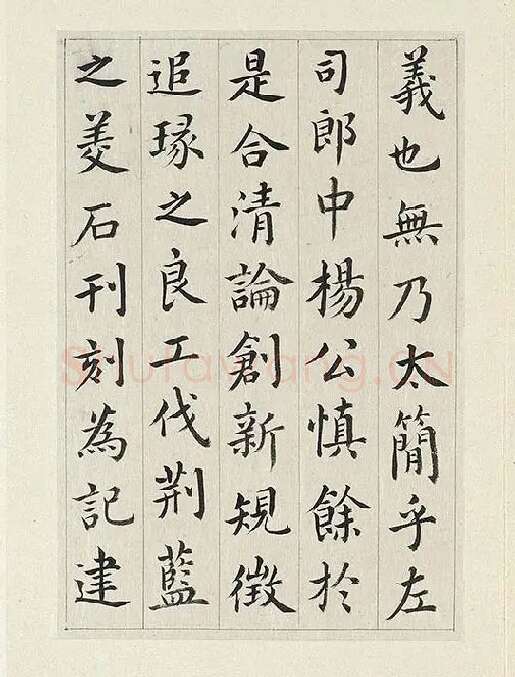 義也無乃太簡乎左
司郎中楊公慎餘於
是合清論創新規徵
追琢之良工伐荆藍
之美石刊刻為記建